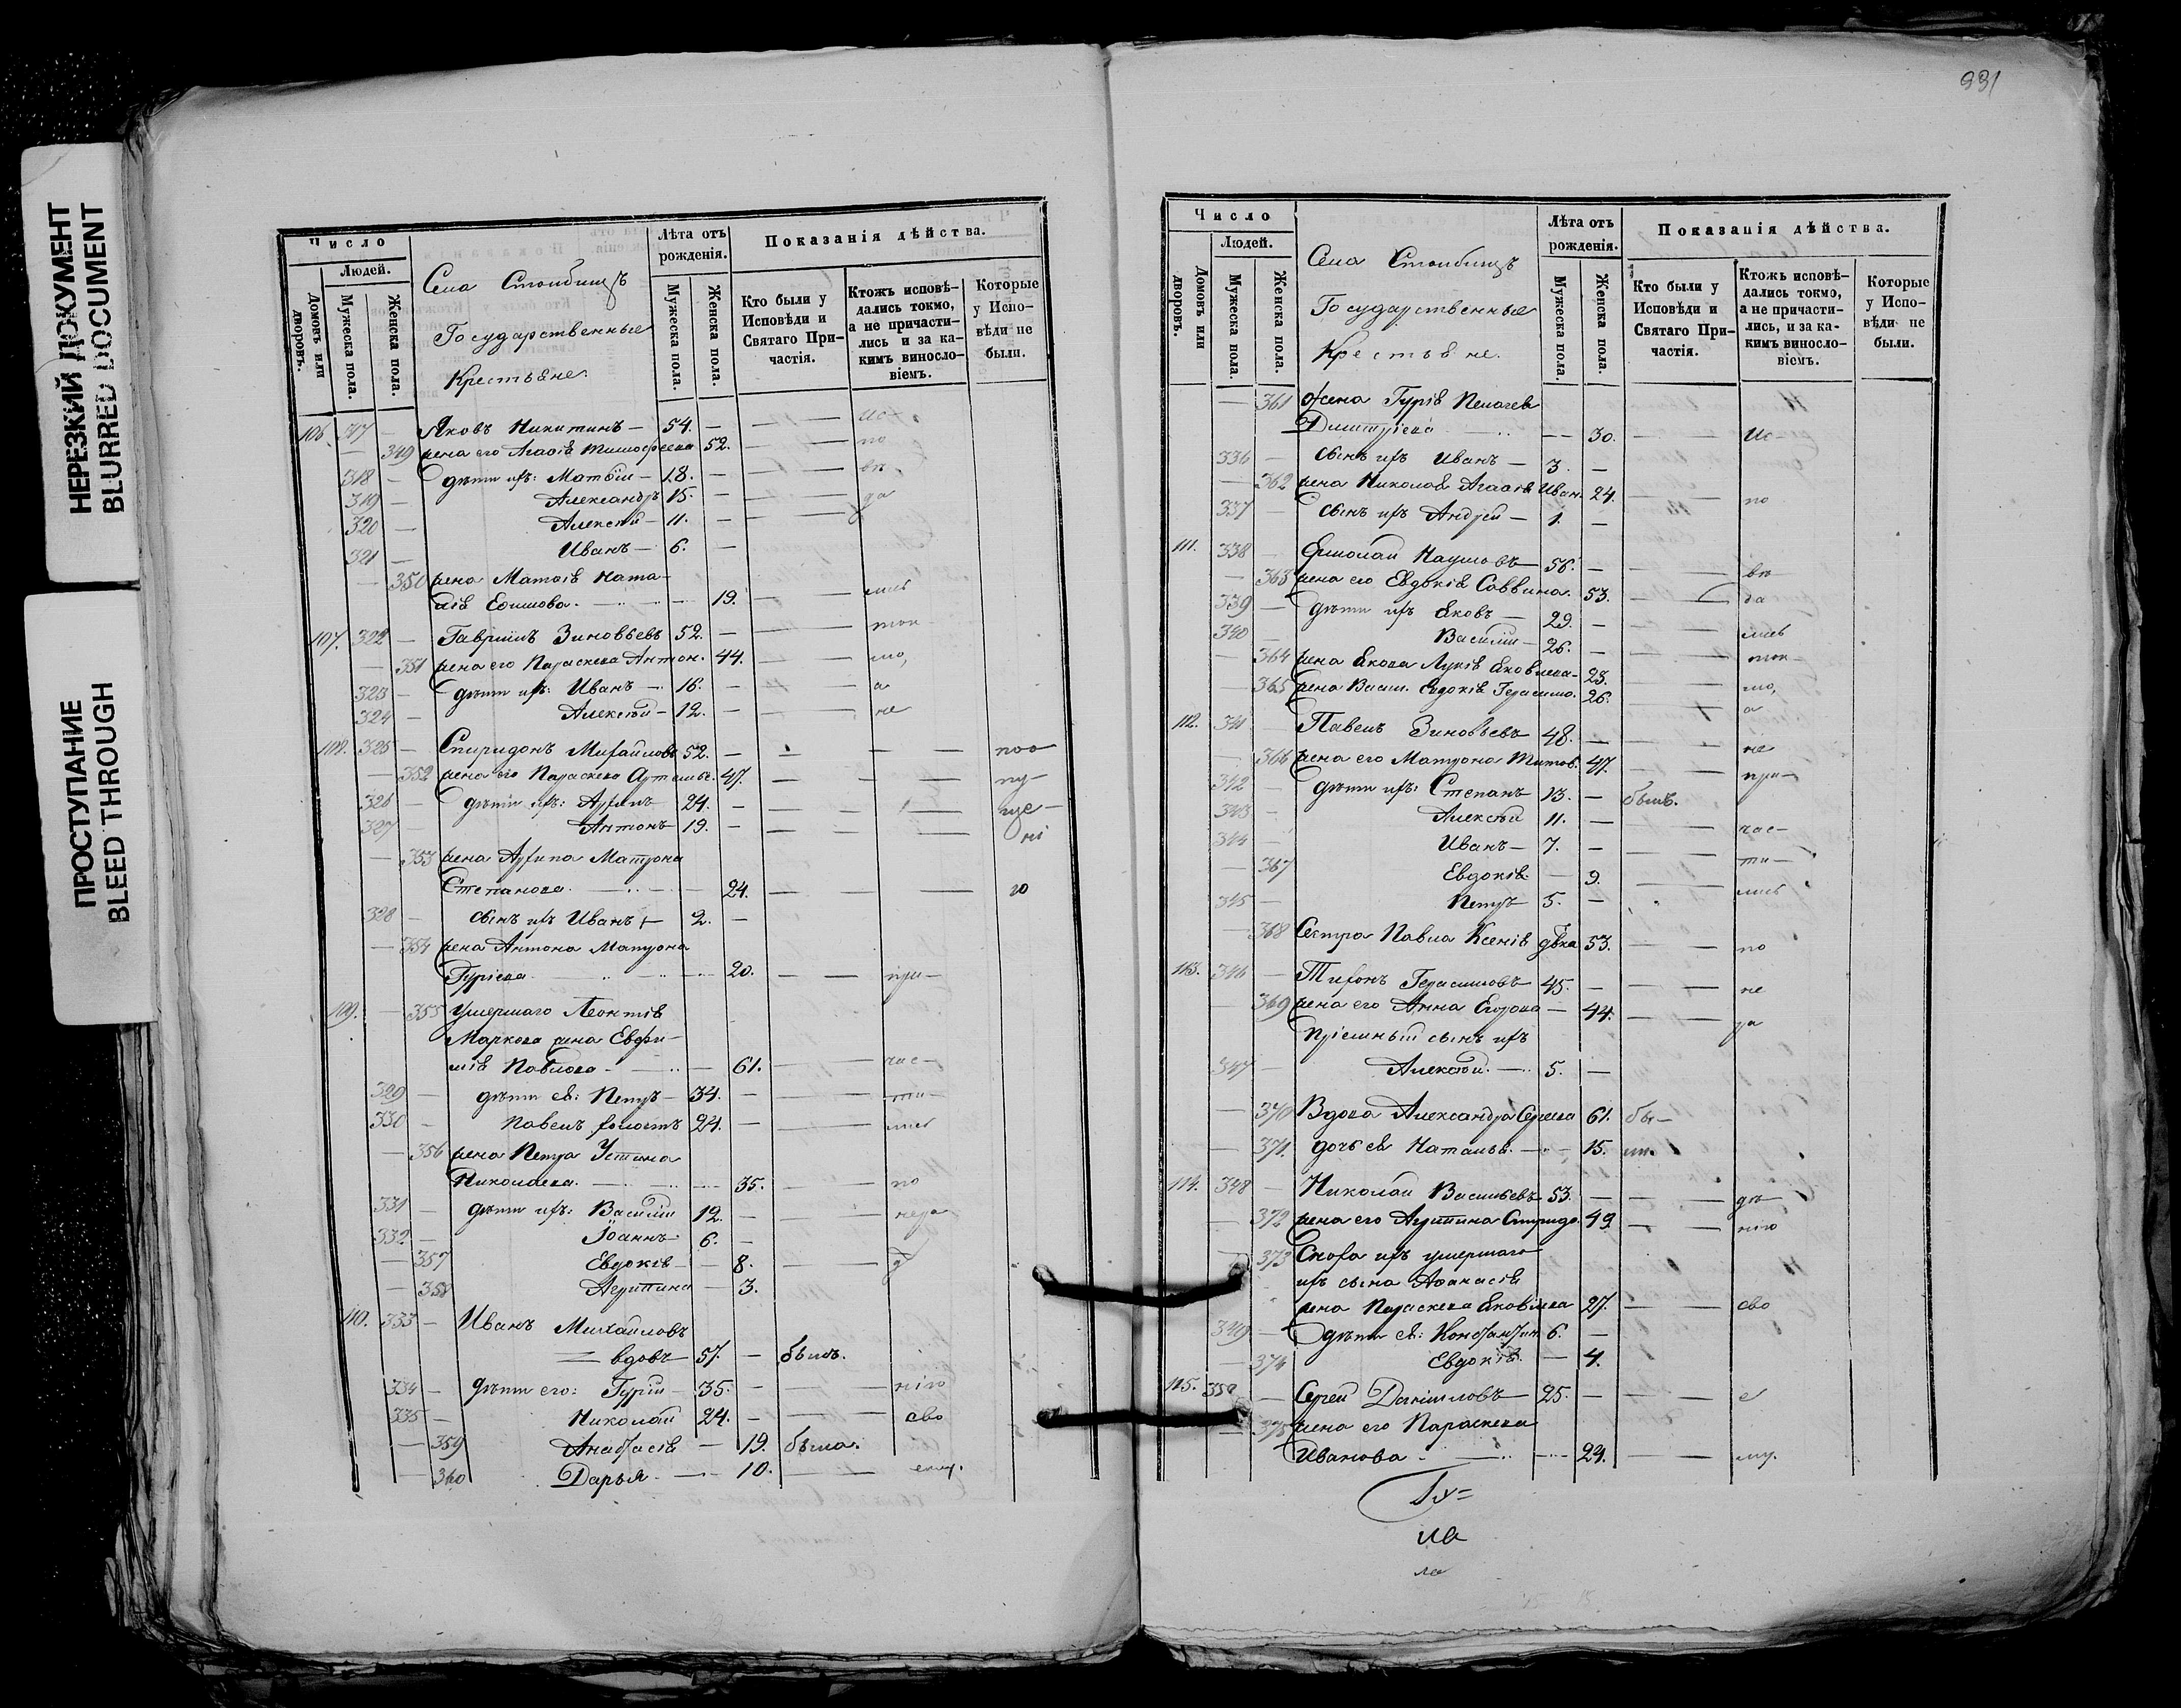 НЕРЕЗКИЙ ДОКУМЕНТ
BLURRED DOCUMENT
ПРОСТУПАНИЕ
BLEED THROUGH
Число
Людей.
Домовъ или дворовъ.
Мужеска пола.
Женска пола.
Села Столбищъ
Государственные
Крестьяне.
Лѣта отъ рожденія.
Мужеска пола.
Женска пола.
Показанія дѣйства.
Кто были у Исповѣди и Святаго Причастія.
Ктожъ исповѣдались токмо, а не причастились и за какимъ винословіемъ.
Которые у Исповѣди не были.
106. 317 — Яковъ Никитинъ — 54. — — ис-
— 349 жена его Агаѳія Тимофеева 52. — по
318 — дѣти ихъ: Матѳій — 18. — — вѣ
319 — Александръ 15. — — да
320 — Алексѣй — 11. —
321 — Иванъ — 6. —
— 350 жена Матѳія Ната-
лія Ефимова. — 19. — лись
107. 322 — Гавріилъ Зиновьевъ 52. — — ток
— 351 жена его Параскева Антон. 44. — мо,
323 — дѣти ихъ: Иванъ — 16. — — а
324 — Алексѣй — 12. — — не
108. 325 — Спиридонъ Михайловъ 52. — — —
— 352 жена его Параскева Артемье. 47. — — — пу-
326 — дѣти ихъ: Архипъ 24. — — — ще-
327 — Антонъ 19. — — — ні
— 353 жена Архипа Матрона
Степанова. — 24. — — — ю
328 — сынъ ихъ Иванъ — 2. —
— 354 жена Антона Матрона
Гуріева — 20. — — при-
109. — 355 Умершаго Леонтія
Маркова жена Евфи-
мія Павлова — 61. — час-
329 — дѣти ея: Петръ — 34. — — ти-
330 — Павелъ холостъ 24. — — лись
— 356 жена Петра Устина
Николаева. — 35. — по
331 — дѣти ихъ: Василій 12. — — нера
332 — Іоаннъ 6. —
— 357 Евдокія — 8. — д
— 358 Агриппина — 3.
110. 333 — Иванъ Михайловъ
вдовъ — 57. — былъ.
334 — дѣти его: Гурій — 35. — — нію
335 — Николай 24. — — сво
— 359 Анастасія — 19. была.
— 360 Дарья. — 10. — ему.
331
Число
Людей.
Домовъ или дворовъ.
Мужеска пола.
Женска пола.
Села Столбищъ
Государственные
Крестьяне.
Лѣта отъ рожденія.
Мужеска пола.
Женска пола.
Показанія дѣйства.
Кто были у Исповѣди и Святаго Причастія.
Ктожъ исповѣдались токмо, а не причастились, и за какимъ винословіемъ.
Которые у Исповѣди не были.
— 361 Жена Гурія Пелагея
Димитріева — 30. — — Ис-
336 — сынъ ихъ Иванъ — 3. —
— 362 жена Николая Агаѳія Иван. 24. — — по
337 — сынъ ихъ Андрей — 1. —
111. 338 — Ермолай Наумовъ — 56. — — вѣ
— 363 жена его Евдокія Саввина. 53. — да
339 — дѣти ихъ Яковъ — 29. — — лись
340 — Василій — 26. — — ток-
— 364 жена Якова Лукія Яковлева — 23. — мо,
— 365 жена Васил. Евдокія Герасимо. 26. — а
112. 341 — Павелъ Зиновьевъ 48. — — не
— 366 жена его Матрона Титов. 47. — при-
342 — дѣти ихъ: Степанъ 13. — былъ.
343 — Алексѣй 11. — — час-
344 — Иванъ — 7. — — ти-
— 367 Евдокія — 9. — лись
345 — Петръ 5. —
— 368 Сестра Павла Ксенія дѣвка 53. — — по
113. 346 — Тихонъ Герасимовъ 45. — — не
— 369 жена его Анна Егорова — 44. — ра
Пріемный сынъ ихъ
347 — Алексѣй. — 5. —
— 370 Вдова Александра Сергеева 61. бы-
— 371. дочь ея Наталья. — 15. ли.
114. 348 — Николай Васильевъ 53. — — дѣ
— 372 жена его Агриппина Спиридо. 49. — нію
— 373 Сноха ихъ умершаго
ихъ сына Аѳанасія
жена Параскева Яковлева 27. — — сво
349 — дѣти ея: Константин 6. —
— 374 Евдокія. — 4.
115. 350 — Сергей Даниловъ — 25. — — е
— 375 жена его Параскева
Иванова — 24. — — му.